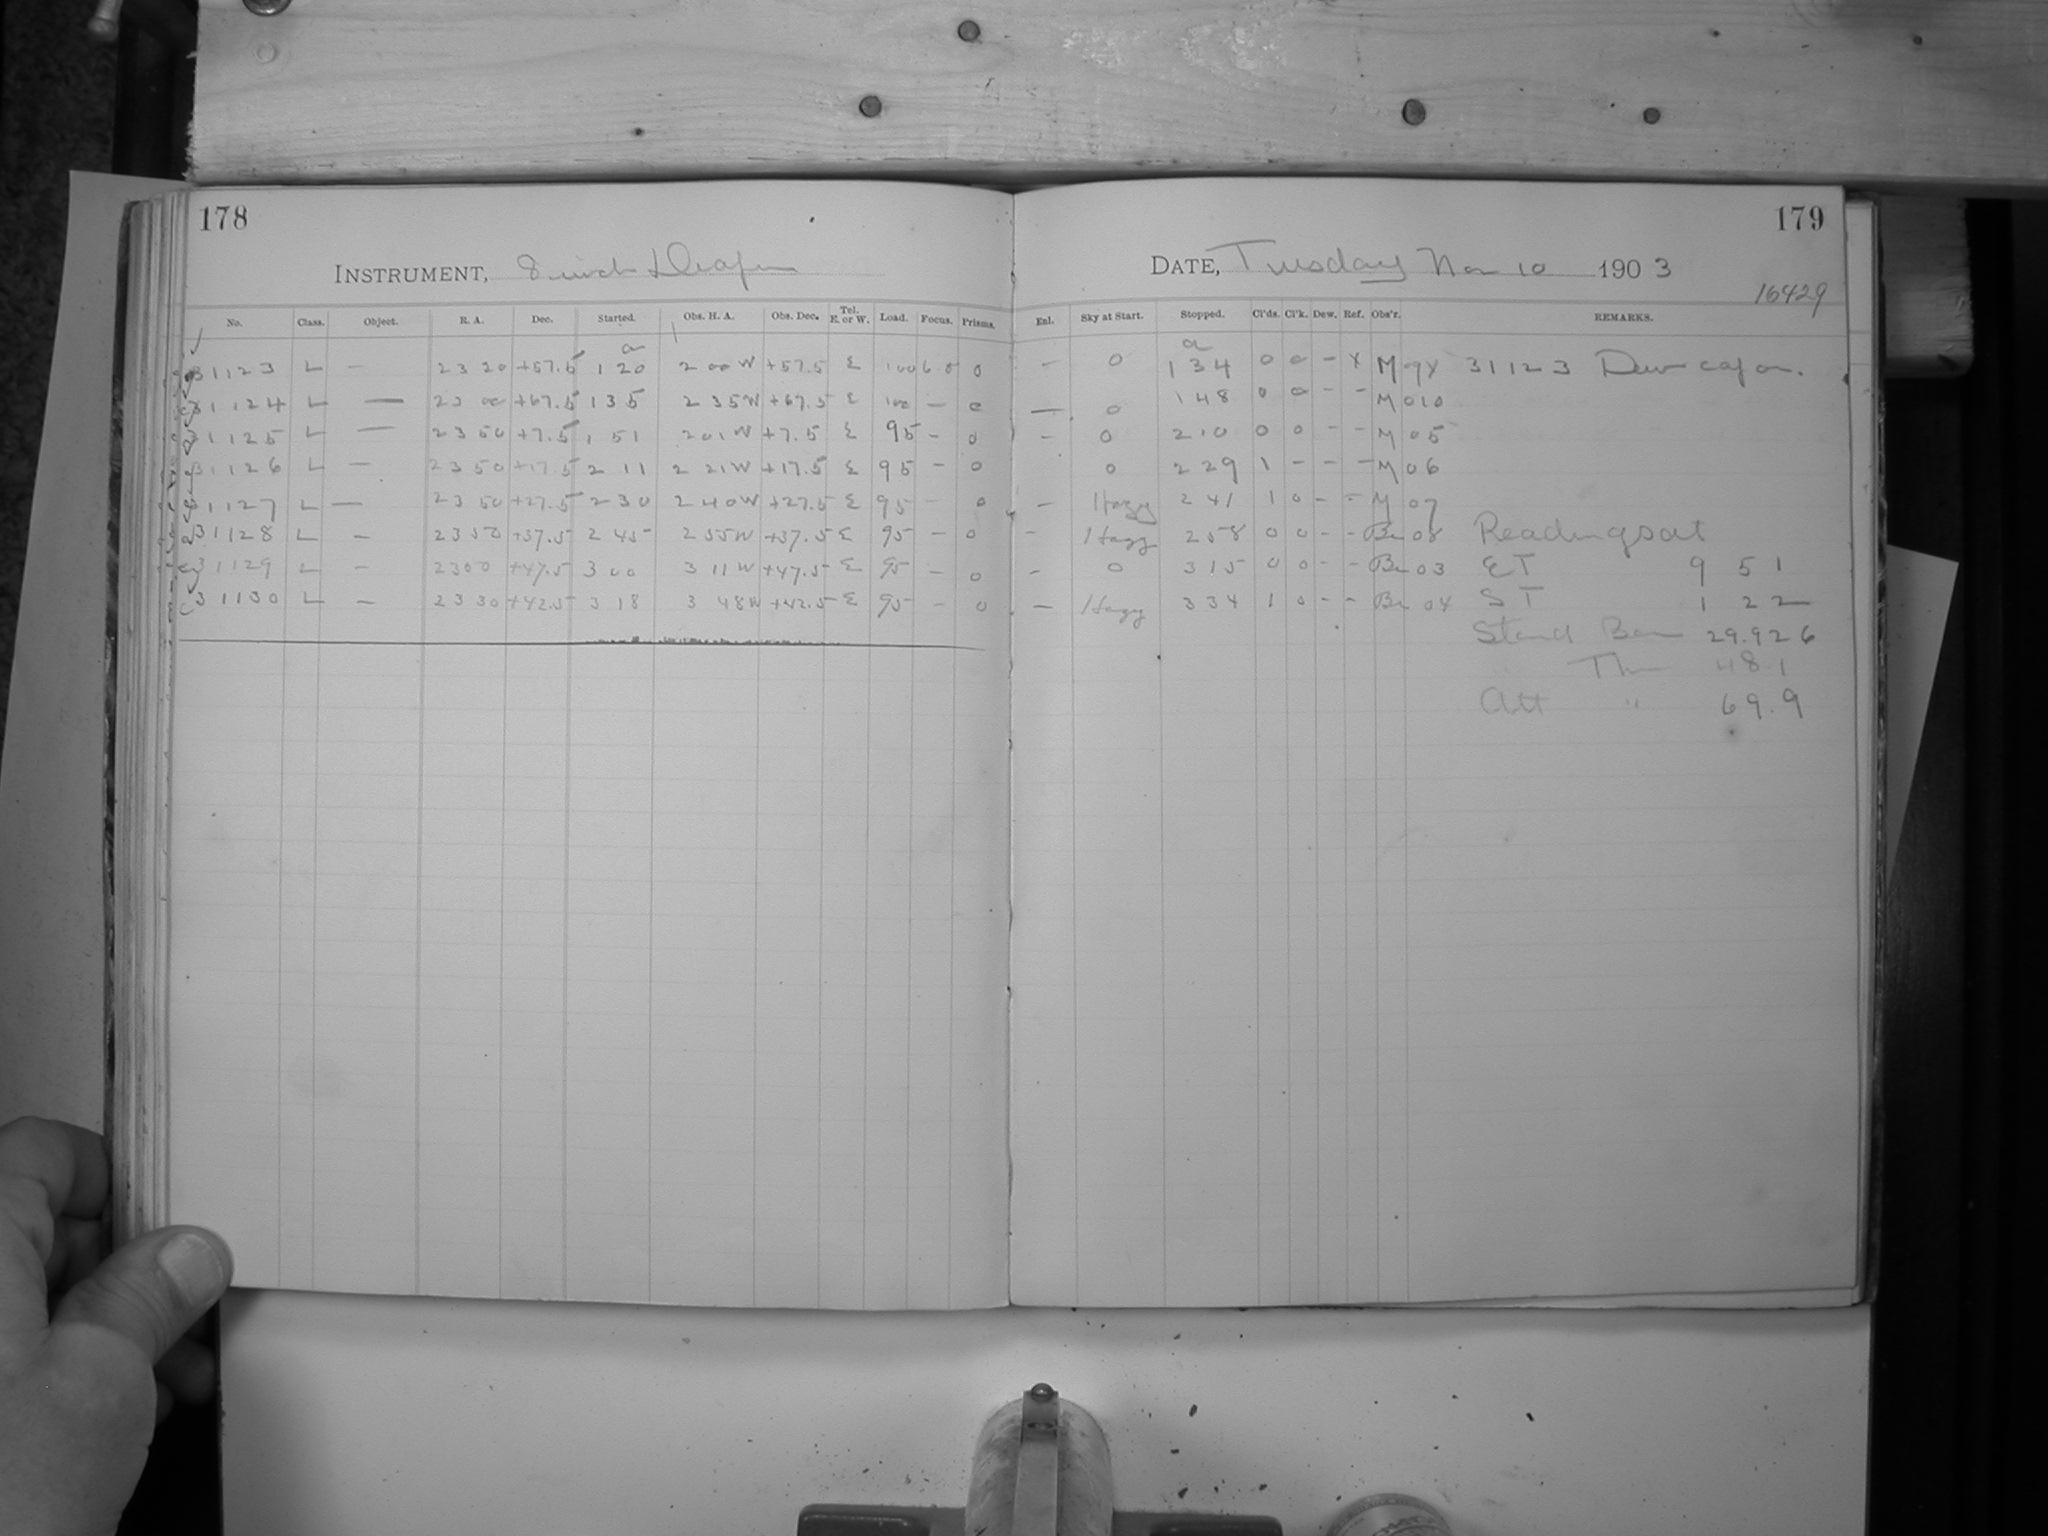 178
INSTRUMENT, 8 inch Draper
No. Class. Object. R. A. Dec. Started. Obs. H. A. Obs. Dec. Tel. E. or W. Load. Focus. Prisms.
a
31123 L — 23 20 +57.5 1 20 2 00 W +57.5 E 100 6.0 0
31124 L — 23 00 +67.5 1 35 2 35 W +67.5 E 100 — 0
31125 L — 23 50 +7.5 1 51 2 01 W +7.5 E 95 – 0
31126 L — 23 50 +17.5 2 11 2 21 W +17.5 E 95 – 0
31127 L — 23 50 +27.5 2 30 2 40 W +27.5 E 95 – 0
31128 L – 23 50 +37.5 2 45 2 55 W +37.5 E 95 – 0
31129 L – 23 00 +47.5 3 00 3 11 W +47.5 E 95 – 0
31130 L – 23 30 +42.5 3 18 3 48 W +42.5 E 95 – 0
179
DATE, Tuesday Nov 10 1903
16429
Enl. Sky at Start. Stopped. Cl'ds. Cl'k. Dew. Ref. Obs'r. REMARKS.
a
– 0 1 34 0 0 – x M 9x 31123 Dew cap on.
— 0 1 48 0 0 – – M 010
– 0 2 10 0 0 – – M 05
0 2 29 1 – – – M 06
– Hazy 2 41 1 0 – – M 07
– Hazy 2 58 0 0 – – Br 08 Readings at
– 0 3 15 0 0 – – Br 03 ET 9 51
– Hazy 3 34 1 0 – – Br 04 ST 1 22
Stand Bar 29.926
" Thr 48.1
Att " 69.9